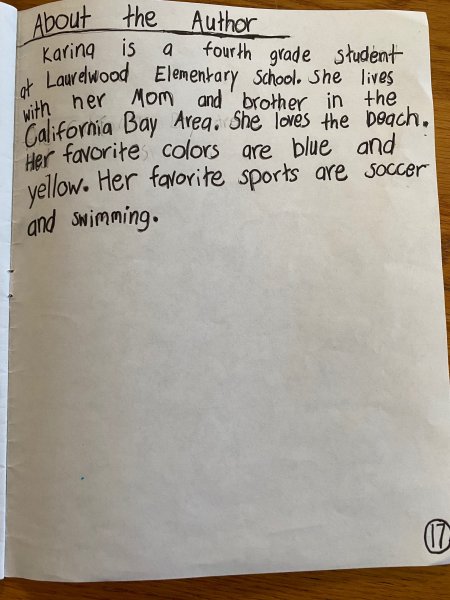 About the Author
Karina is a fourth grade student
at Laurelwood Elementary School. She lives
with her Mom and brother in the
California Bay Area. She loves the beach.
Her favorite colors are blue and
yellow. Her favorite sports are soccer
and swimming.
17